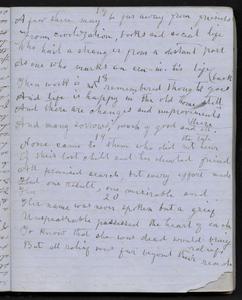 18
A year there many to go away from friends
From civilization, books and social life
Who had a stranger from a distant port
As one who marks an era in his life
back
18
Then work is not remembered thought goes
And life is happy in the old home
And there are changes and improvements
And many sorrows, much of good and
there
None came to them who did not hear
Of their lost child and her devoted friend
All promised search, but every effort made
Had one result, one miserable end
20
Her name was never spoken but a grief
Unspeakable possessed the heart of each
To know that she was dead would bring
relief
But all relief was far beyond their reach